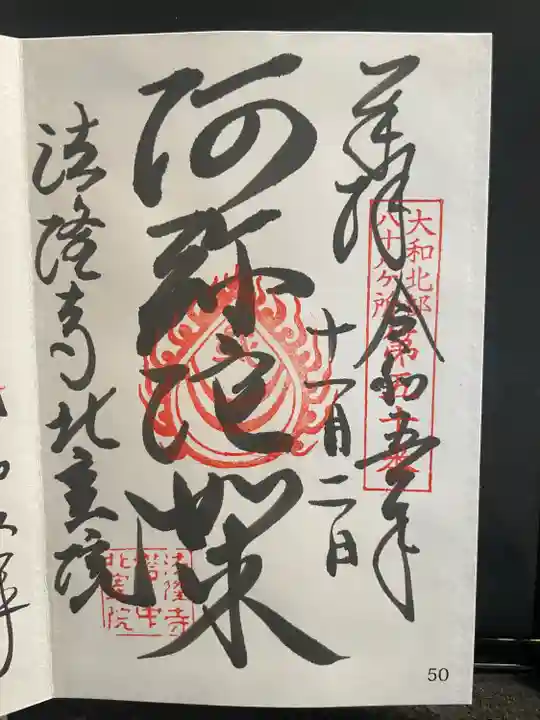 奉拝
令和五年
十一月二日
大和北部
八十八ヶ所
第五十番
阿弥陀如来
法隆寺北室院
法隆寺
北室院
50